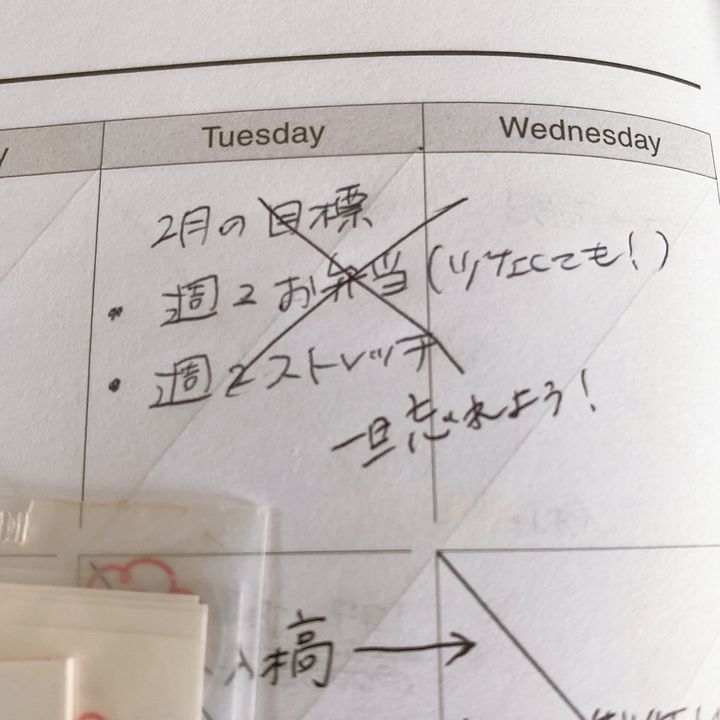 Tuesday
Wednesday
2月の目標
・週2お弁当(少なくても!)
・週2ストレッチ
一旦忘れよう!
入稿 →